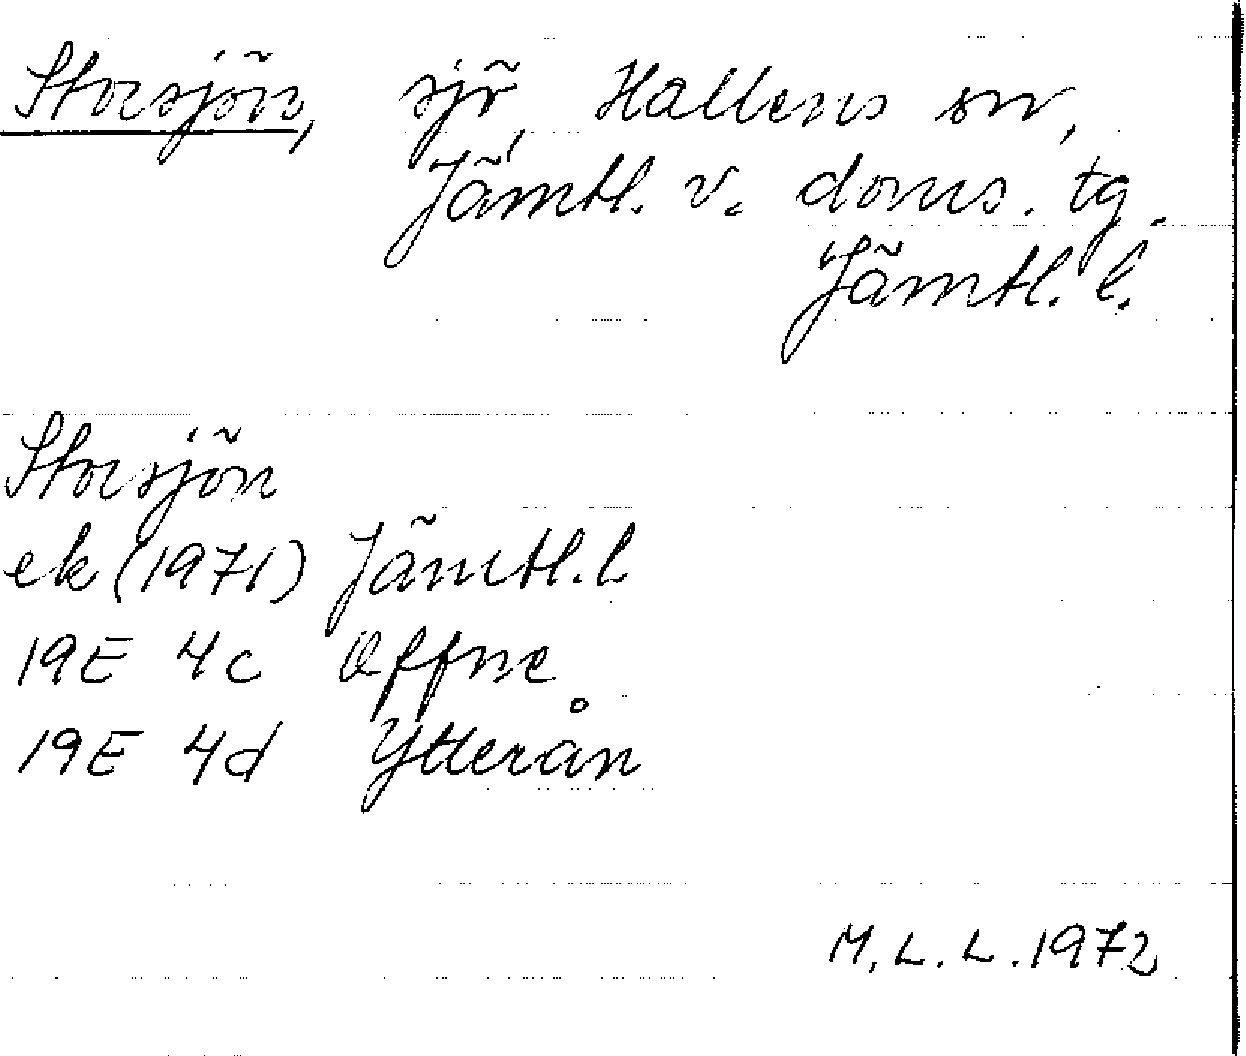 Storsjön, sjö, Hallens sn,
Jämtl. v. doms. tg.
Jämtl. l.
Storsjön
ek (1971) Jämtl. l
19E 4c Offne
19E 4d Ytterån
M. L. L. 1972